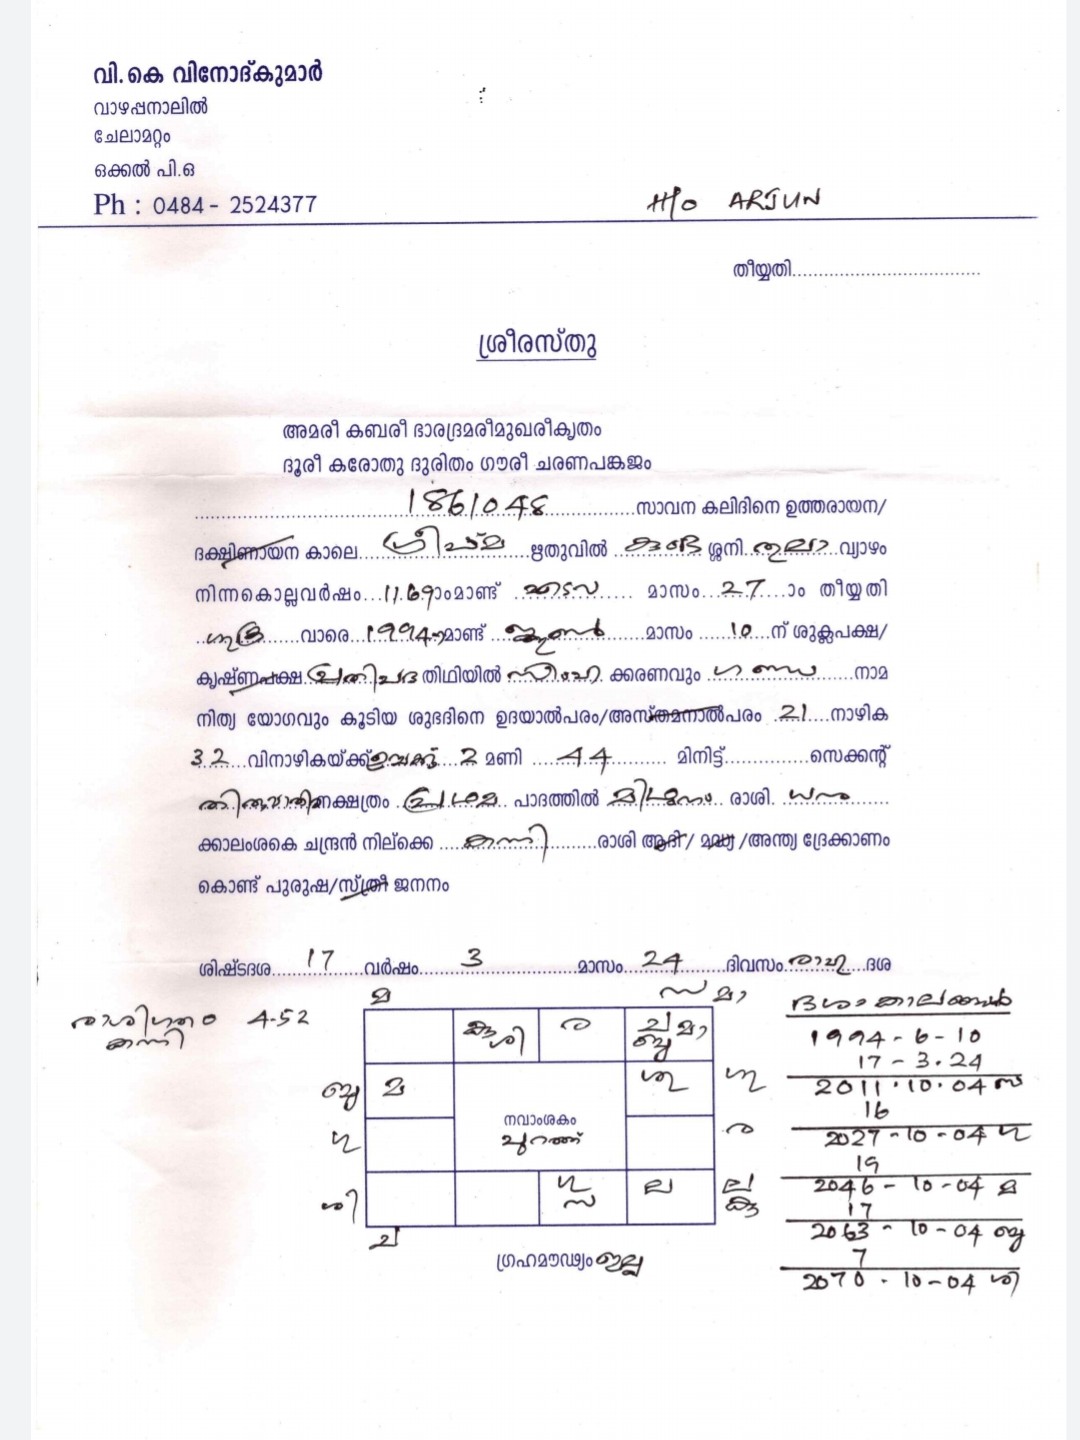 വി.കെ വിനോദ്കുമാർ
വാഴപ്പനാലിൽ
ചേലാമറ്റം
ഒക്കൽ പി.ഒ
Ph : 0484 - 2524377
H/o ARJUN
തീയ്യതി
ശ്രീരസ്തു
അമരീ കബരീ ഭാരഭ്രമരീമുഖരീകൃതം
ദൂരീ കരോതു ദുരിതം ഗൗരീ ചരണപങ്കജം
1861048 സാവന കലിദിനെ ഉത്തരായന/
ദക്ഷിണായന കാലെ ഗ്രീഷ്മ ഋതുവിൽ കുംഭ ശ്ശനി തുലാ വ്യാഴം
നിന്നകൊല്ലവർഷം 1169 ാംമാണ്ട് എടവ മാസം 27 ാം തീയ്യതി
ശുക്ര വാരെ 1994 ാമാണ്ട് ജൂൺ മാസം 10 ന് ശുക്ലപക്ഷ/
കൃഷ്ണപക്ഷ പ്രതിപദ തിഥിയിൽ സിംഹ ക്കരണവും ഗണ്ഡ നാമ
നിത്യ യോഗവും കൂടിയ ശുഭദിനെ ഉദയാൽപരം/അസ്തമനാൽപരം 21 നാഴിക
32 വിനാഴികയ്ക്ക് ഉച്ചക്ക് 2 മണി 44 മിനിട്ട് സെക്കന്റ്
തിരുവാതിര നക്ഷത്രം പ്രഥമ പാദത്തിൽ മിഥുനം രാശി ധനു
ക്കാലംശകെ ചന്ദ്രൻ നില്ക്കെ കന്നി രാശി ആദി/ മദ്ധ്യ /അന്ത്യ ദ്രേക്കാണം
കൊണ്ട് പുരുഷ/സ്ത്രീ ജനനം
ശിഷ്ടദശ 17 വർഷം 3 മാസം 24 ദിവസം രാഹു ദശ
രാശിഗതം 4-52
കന്നി
മ
സ മാ
കു ശി
ര
ച മാ
ബു
ബു
മ
ശു
ഗു
നവാംശകം
പുറത്ത്
ര
ശി
ഗു
സ
ല
ല
കു
ച
ഗ്രഹമൗഢ്യം ഇല്ല
ദശാകാലങ്ങൾ
1994-6-10
17-3.24
2011.10.04 സ
16
2027-10-04 ഗു
19
2046-10-04 മ
17
2063-10-04 ബു
7
2070-10-04 ശി